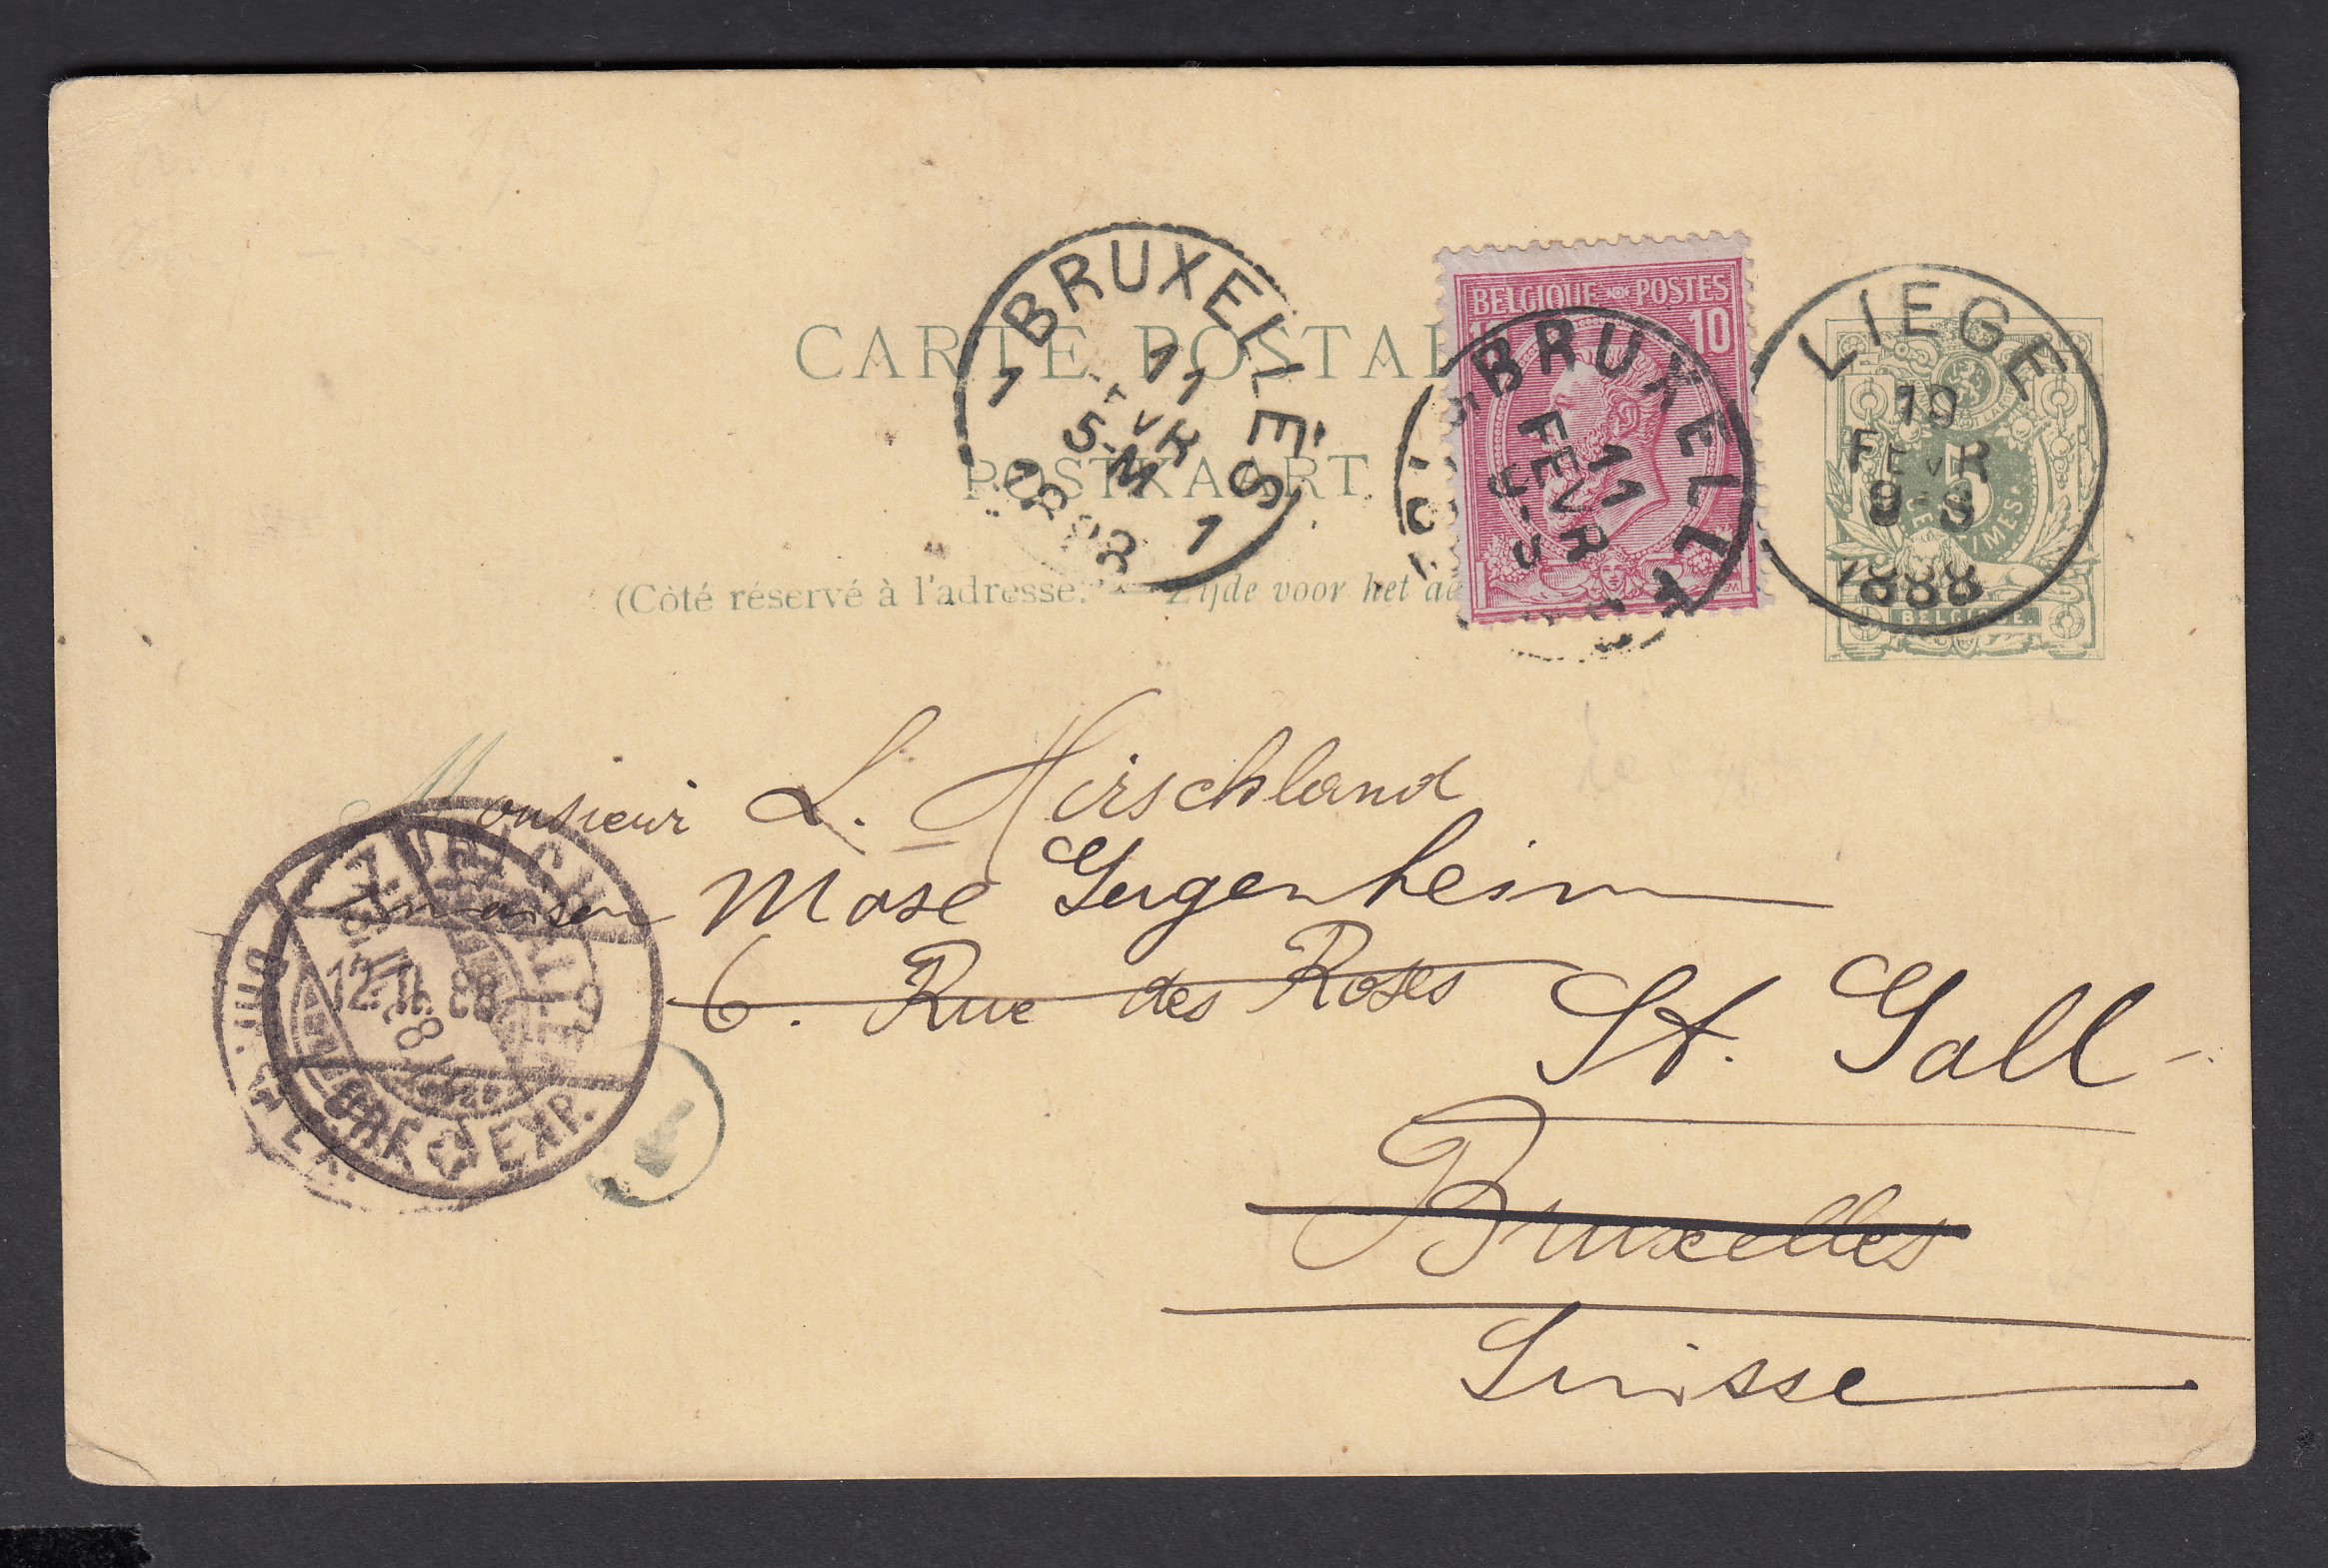 CARTE POSTAL
POSTKAART
(Côté réservé à l'adresse. — Zijde voor het
BRUXELLES
1 1
11
FEVR
5-M
BELGIQUE POSTES
10
BRUXELLES
11
FEVR
LIEGE
10
FEVR
1888
5
BELGIQUE.
Monsieur L. Hirschland
maison Mose Gugenheim
6. Rue des Roses St. Gall
Bruxelles
Suisse
ZÜRICH
12. II. 88
EXP.